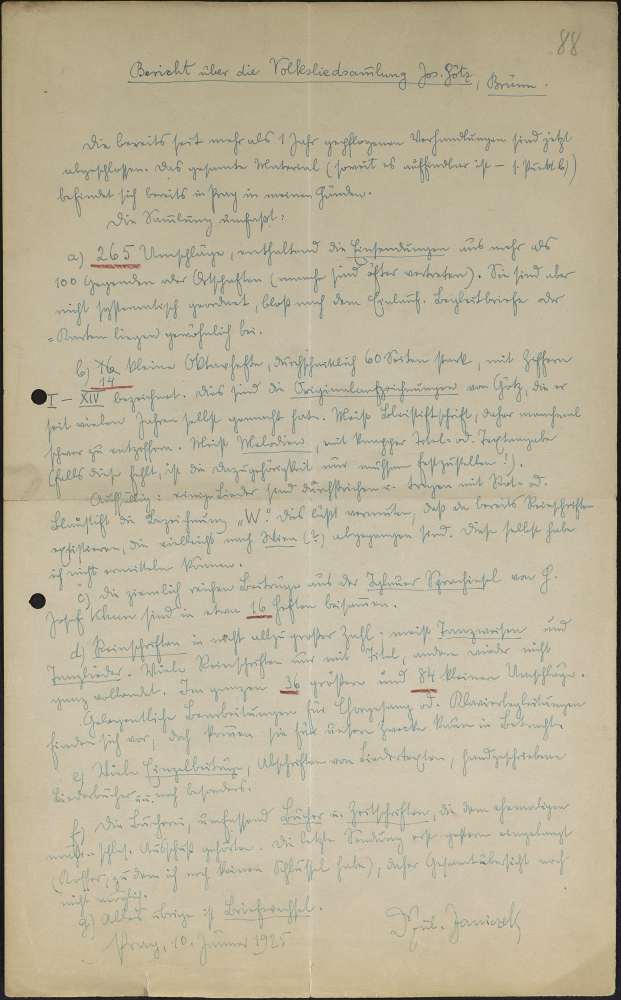 88
Bericht über die Volksliedsammlung Jos. Götz, Brünn.
Die bereits seit mehr als 1 Jahr gepflogenen Verhandlungen sind jetzt
abgeschlossen. Das gesamte Material (soweit es auffindbar ist – s. Punkt b))
befindet sich bereits in Prag in meinen Händen.
Die Sammlung umfaßt:
a) 265 Umschläge, enthaltend die Einsendungen aus mehr als
100 Gegenden oder Ortschaften (manche sind öfter vertreten). Sie sind aber
nicht systematisch geordnet, bloß nach dem Einlauf. Begleitbriefe oder
-Karten liegen gewöhnlich bei.
b) 14 kleine Oktavhefte, durchschnittlich 60 Seiten stark, mit Ziffern
I – XIV bezeichnet. Dies sind die Originalaufzeichnungen von Götz, die er
seit vielen Jahren selbst gemacht hat. Meist Bleistiftschrift, daher manchmal
schwer zu entziffern. Meist Melodien, mit knapper Titel- od. Textangabe
(falls diese fehlt, ist die Dazugehörigkeit nur mühsam festzustellen!).
Auffällig: einige Lieder sind durchstrichen u. tragen mit Rot- od.
Blaustift die Bezeichnung „W“. Das läßt vermuten, daß da bereits Reinschriften
existieren, die vielleicht nach Wien (?) abgegangen sind. Diese selbst habe
ich nicht ermitteln können.
c) Die ziemlich reichen Beiträge aus der Iglauer Sprachinsel von H.
Josef Klenn sind in etwa 16 Heften beisammen.
d) Reinschriften in nicht allzu großer Zahl: meist Tanzweisen und
Tanzlieder. Viele Reinschriften nur mit Titel, andere wieder nicht
ganz vollendet. Im ganzen 36 größere und 84 kleinere Umschläge.
Gelegentliche Bearbeitungen für Chorgesang od. Klavierbegleitungen
finden sich vor, doch kommen sie für unsere Zwecke kaum in Betracht.
e) Viele Einzelbeiträge, Abschriften von Liedertexten, handgeschriebene
Liederbücher u. noch besonders.
f) Die Bücherei, umfassend Bücher u. Zeitschriften, die dem ehemaligen
mähr.-schles. Ausschuß gehörten. Die letzte Sendung erst gestern eingelangt
(Koffer, zu dem ich noch keinen Schlüssel habe), daher Gesamtübersicht noch
nicht möglich.
g) Alles übrige ist Briefwechsel.
Prag, 10. Jänner 1925
Janiczek